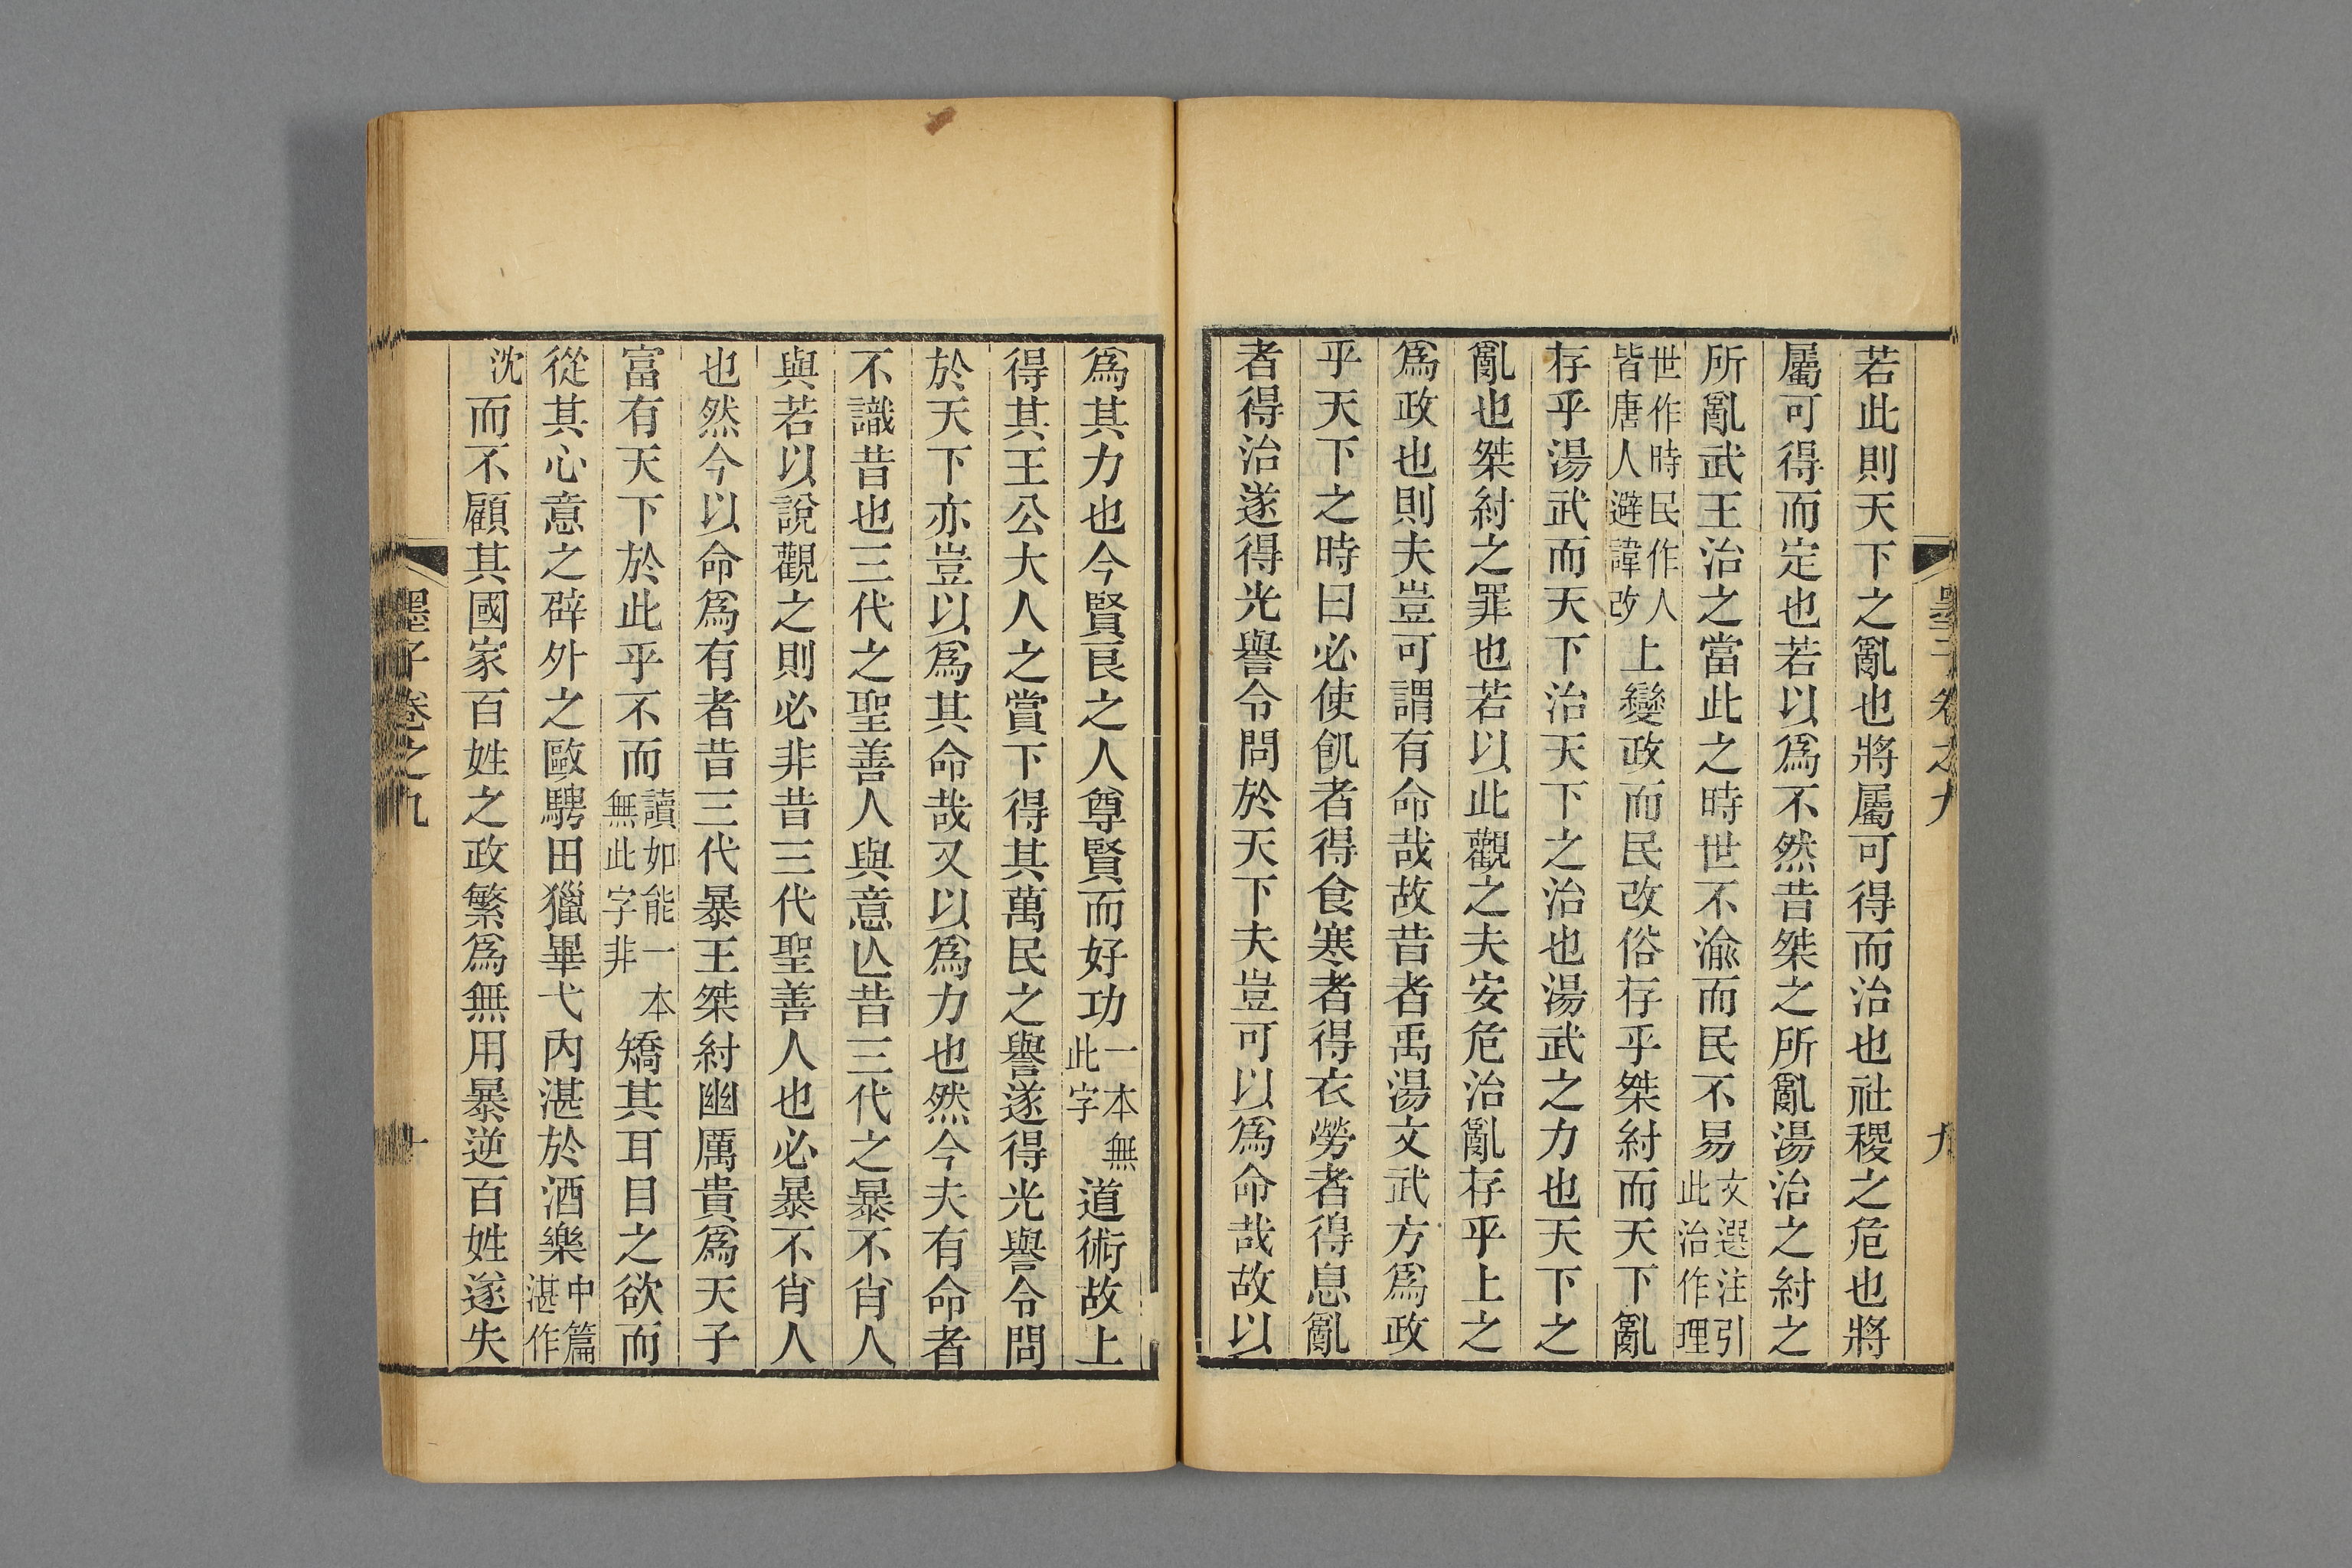 墨子卷之九 九
若此則天下之亂也將屬可得而治也社稷之危也將
屬可得而定也若以爲不然昔桀之所亂湯治之紂之
所亂武王治之當此之時世不渝而民不易文選注引此治作理
世作時民作人皆唐人避諱改上變政而民改俗存乎桀紂而天下亂
存乎湯武而天下治天下之治也湯武之力也天下之
亂也桀紂之罪也若以此觀之夫安危治亂存乎上之
爲政也則夫豈可謂有命哉故昔者禹湯文武方爲政
乎天下之時曰必使飢者得食寒者得衣勞者得息亂
者得治遂得光譽令問於天下夫豈可以爲命哉故以
爲其力也今賢良之人尊賢而好功一本無此字道術故上
得其王公大人之賞下得其萬民之譽遂得光譽令問
於天下亦豈以爲其命哉又以爲力也然今夫有命者
不識昔也三代之聖善人與意亾昔三代之暴不肖人
與若以說觀之則必非昔三代聖善人也必暴不肖人
也然今以命爲有者昔三代暴王桀紂幽厲貴爲天子
富有天下於此乎不而讀如能一本無此字非矯其耳目之欲而
從其心意之辟外之敺騁田獵畢弋內湛於酒樂中篇湛作
沈而不顧其國家百姓之政繁爲無用暴逆百姓遂失
墨子卷之九 十